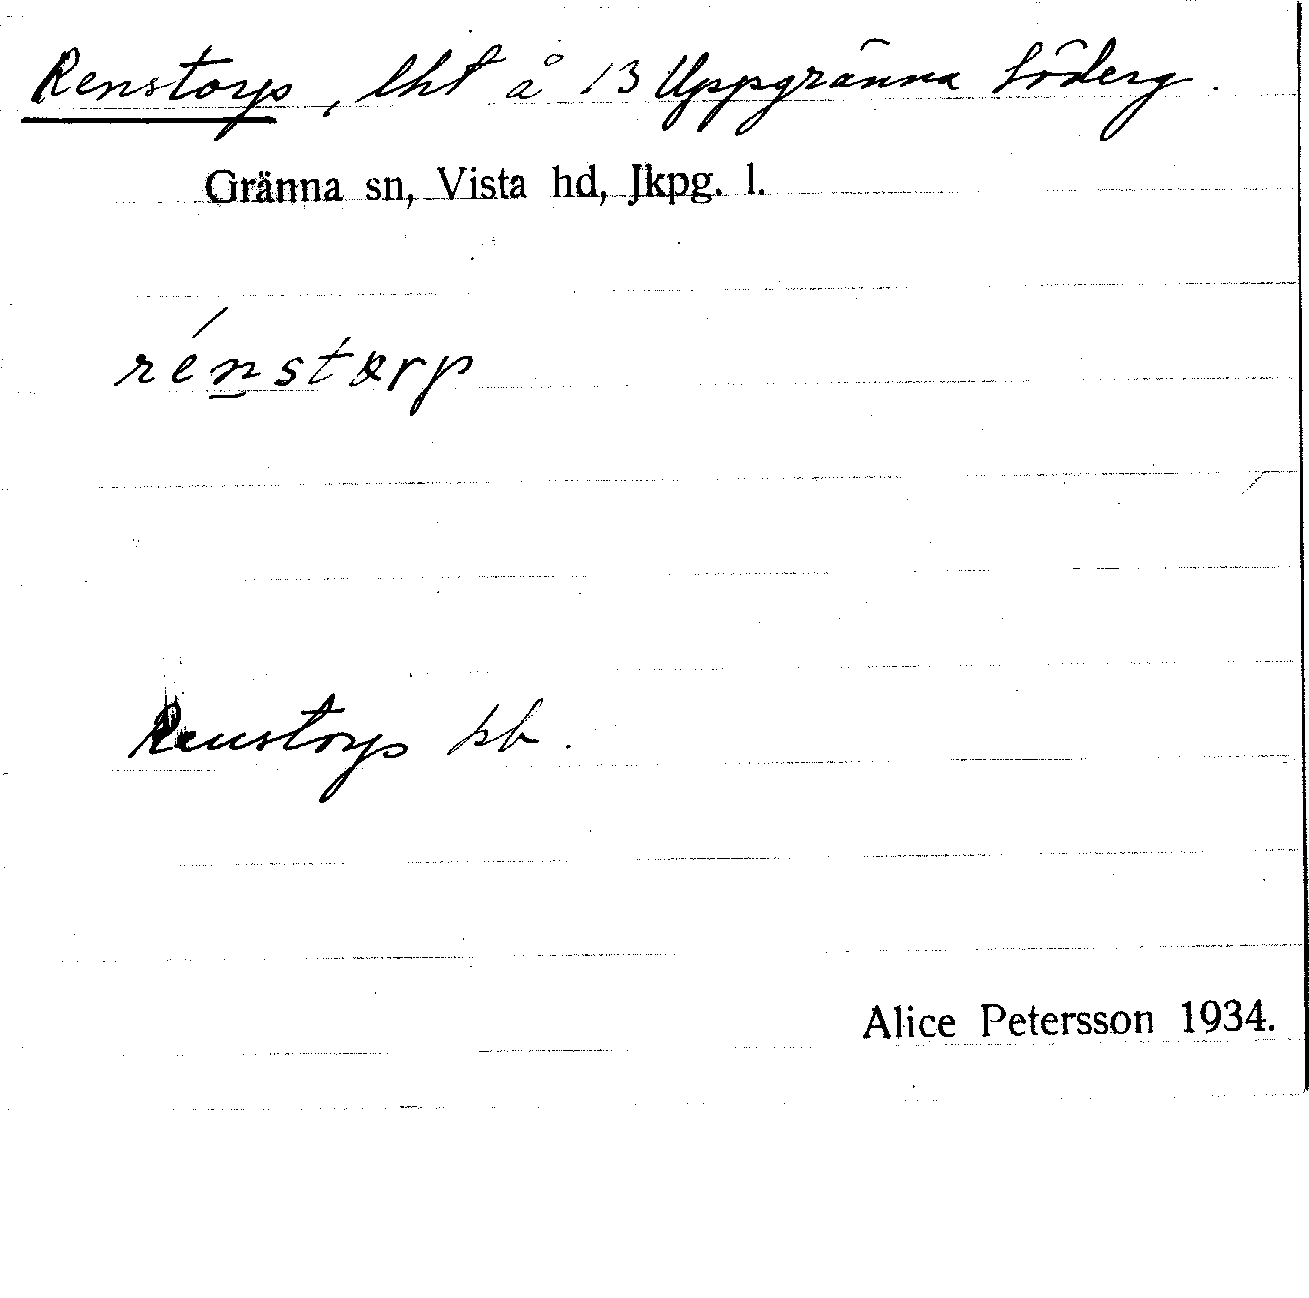 Renstorp, lht å 13 Uppgränna Söderg.
Gränna sn, Vista hd, Jkpg. l.
rénstærp
Renstorp kb.
Alice Petersson 1934.